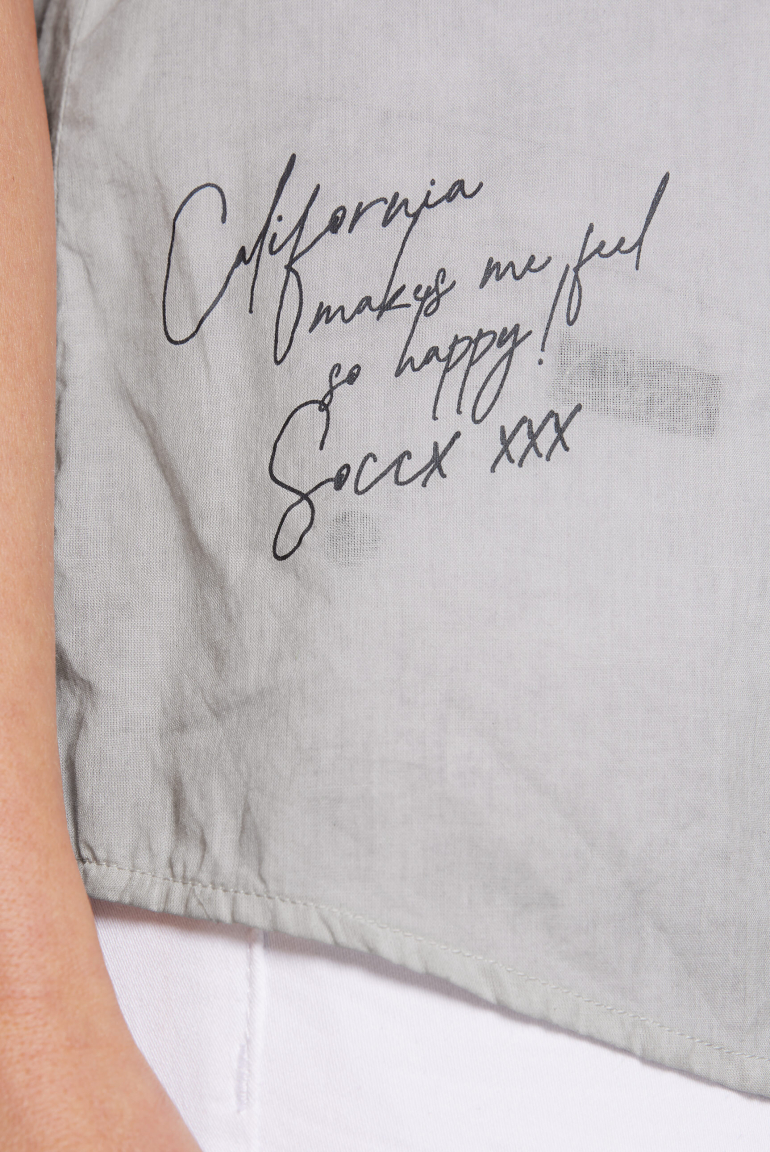 California
makes me feel
so happy!
Soccx xxx